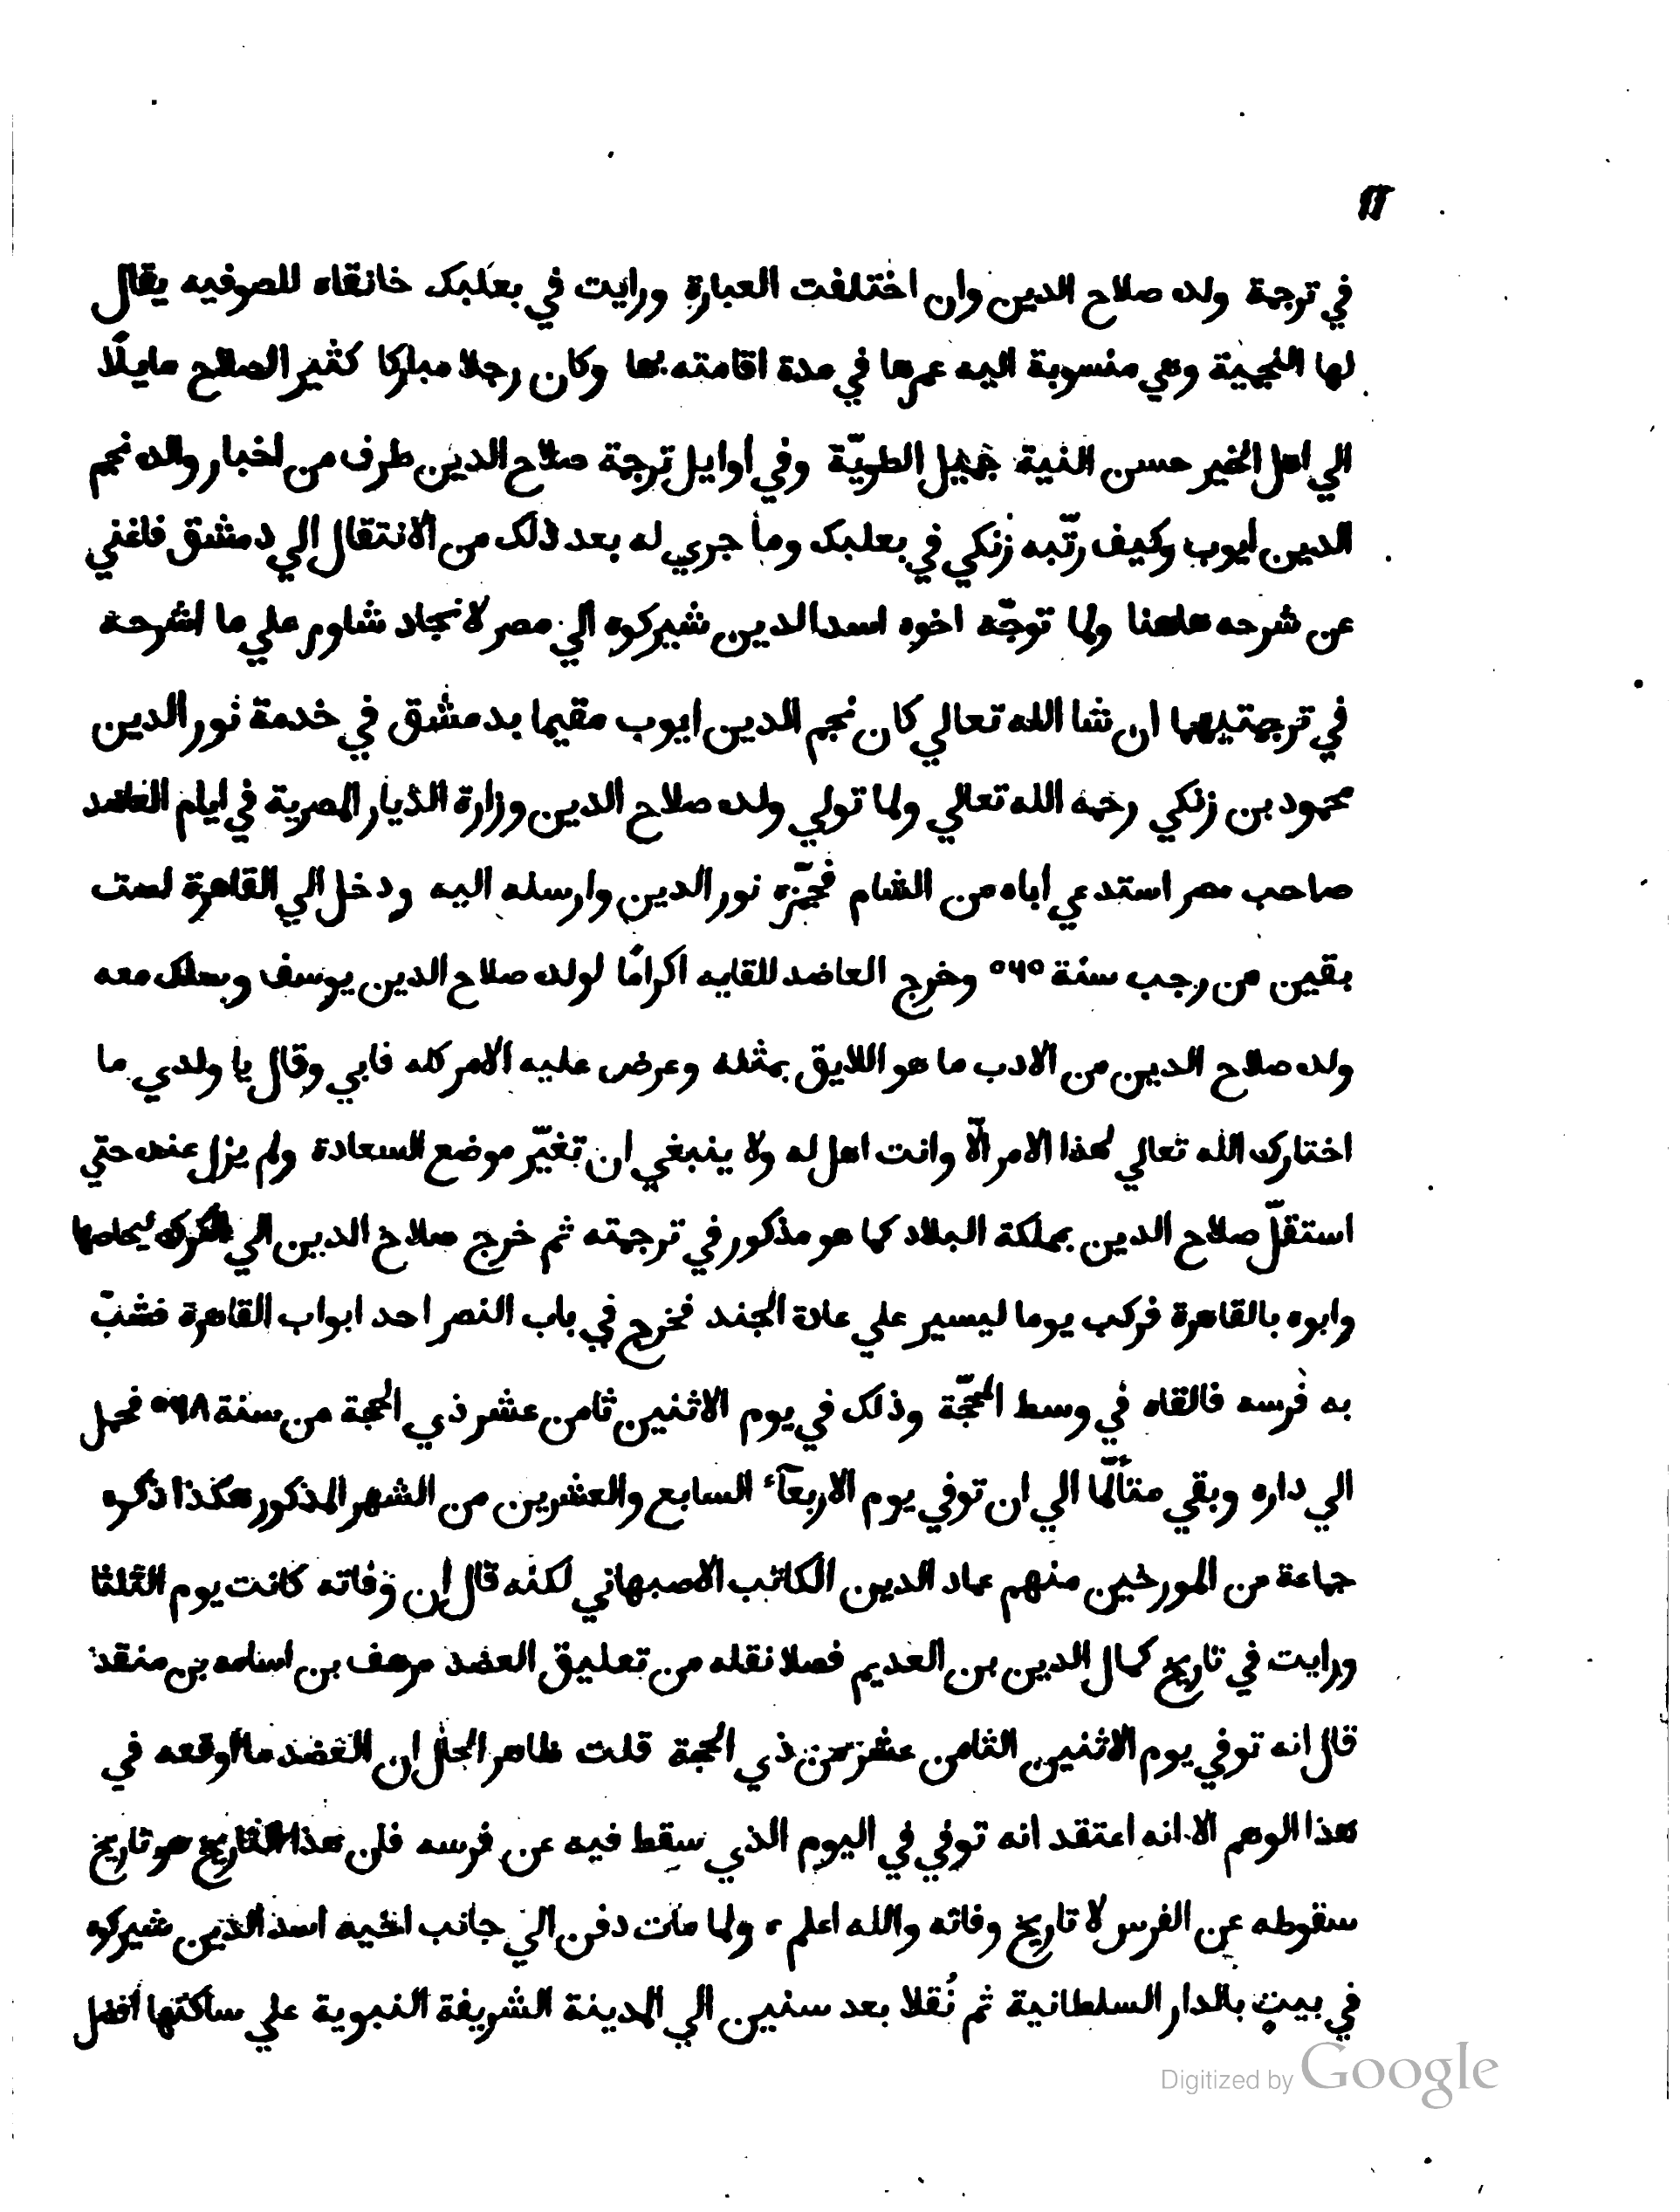 في ترجمة ولده صلاح الدين وان اختلفت العبارة ورايت في بعلبك خانقاه للصوفيه يقال
لها النجمية وهي منسوبة اليه عمرها في مدة اقامته بها وكان رجلا مباركا كثير الصلاح مايلًا
الي اهل الخير حسن النية جميل الطويّة وفي اوايل ترجمة صلاح الدين طرف من اخبار والده نجم
الدين ايوب وكيف رتّبه زنكي في بعلبك وما جري له بعد ذلك من الانتقال الي دمشق فاغني
عن شرحه هاهنا ولما توجّه اخوه اسد الدين شيركوه الي مصر لانجاد شاور علي ما اشرحه
في ترجمتيهما ان شا الله تعالي كان نجم الدين ايوب مقيما بدمشق في خدمة نور الدين
محمود بن زنكي رحمه الله تعالي ولما تولي ولده صلاح الدين وزارة الديار المصرية في ايام العاضد
صاحب مصر استدعي اباه من الشام فجهّزه نور الدين وارسله اليه ودخل الي القاهرة لست
بقين من رجب سنة ٥٦٥ وخرج العاضد للقايه اكرامًا لولده صلاح الدين يوسف وسلك معه
ولده صلاح الدين من الادب ما هو اللايق بمثله وعرض عليه الامر كله فابي وقال يا ولدي ما
اختارك الله تعالي لهذا الامر الّا وانت اهل له ولا ينبغي ان تغيّر موضع السعادة ولم يزل عنده حتي
استقلّ صلاح الدين بمملكة البلاد كما هو مذكور في ترجمته ثم خرج صلاح الدين الي الكرك ليحاصرها
وابوه بالقاهرة فركب يوما ليسير علي عادة الجند فخرج في باب النصر احد ابواب القاهرة فشبّ
به فرسه فالقاه في وسط المحجّة وذلك في يوم الاثنين ثامن عشر ذي الحجة من سنة ٥٦٨ فحمل
الي داره وبقي متألّما الي ان توفي يوم الاربعآء السابع والعشرين من الشهر المذكور هكذا ذكره
جماعة من المورخين منهم عماد الدين الكاتب الاصبهاني لكنه قال ان وفاته كانت يوم الثلثا
ورايت في تاريخ كمال الدين بن العديم فصلا نقله من تعليق العضد مرهف بن اسامه بن منقذ
قال انه توفي يوم الاثنين الثامن عشر من ذي الحجة قلت ظاهر الحال ان العضد ما اوقعه في
هذا الوهم الا انه اعتقد انه توفي في اليوم الذي سقط فيه عن فرسه فان هذا التاريخ هو تاريخ
سقوطه عن الفرس لا تاريخ وفاته والله اعلم ، ولما مات دفن الي جانب اخيه اسد الدين شيركوه
في بيتٍ بالدار السلطانية ثم نُقلا بعد سنين الي المدينة الشريفة النبوية علي ساكنها افضل
Digitized by Google